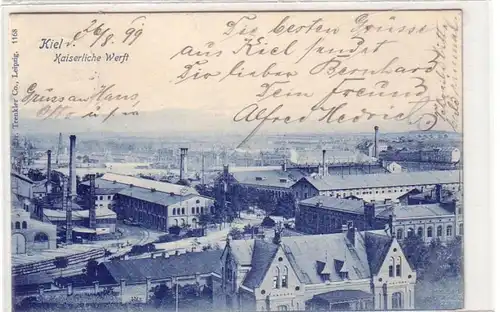 Kiel d. 26/8. 99
Kaiserliche Werft
Die besten Grüsse
aus Kiel sendet
Dir lieber Bernhard,
Dein Freund
Alfred
Gruss an Hans,
Trenkler Co., Leipzig. 1168